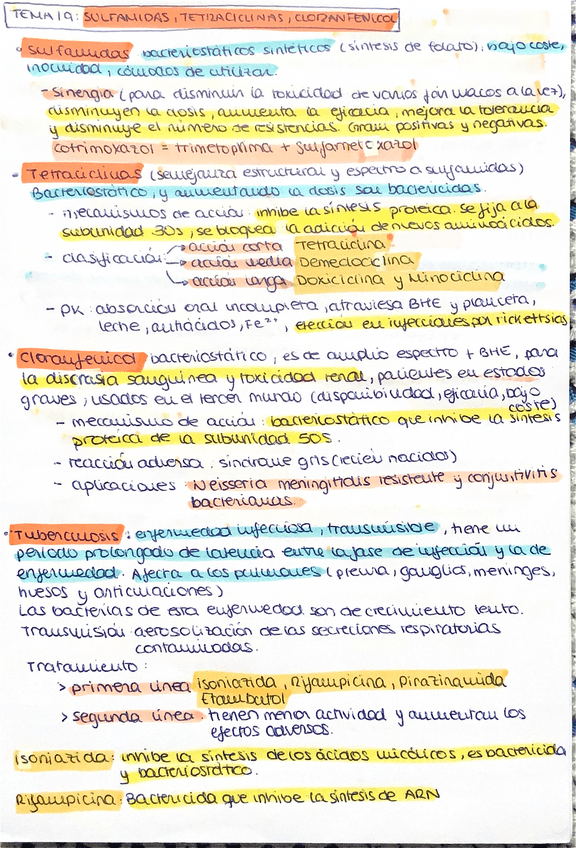 TEMA 19: SULFAMIDAS, TETRACICLINAS, CLORANFENICOL
• Sulfamidas bacteriostáticos sintéticos (síntesis de folato), bajo coste,
inocuidad, cómodos de utilizar.
- Sinergia (para disminuir la toxicidad de varios fármacos a la vez),
disminuyen la dosis, aumenta la eficacia, mejora la tolerancia
y disminuye el número de resistencias. Gram positivas y negativas.
cotrimoxazol = trimetoprima +
• Tetraciclinas (semejanza estructural y espectro a sulfamidas)
Bacteriostático, y aumentando la dosis son bactericidas.
- Mecanismos de acción: inhibe la síntesis proteica. Se fija a la
subunidad 30s, se bloquea la adición de nuevos aminoácidos.
- clasificación → acción corta Tetraciclina
→ acción media Demeclociclina
→ acción larga Doxiciclina y Minociclina
- PK: absorción oral incompleta, atraviesa BHE y placenta,
leche, antiácidos, Fe²⁺, elección en infecciones por rickettsias
• Cloranfenicol bacteriostático, es de amplio espectro + BHE, para
la discrasia sanguínea y toxicidad renal, pacientes en estados
graves, usados en el tercer mundo (disponibilidad, eficacia, bajo
coste)
- mecanismo de acción: bacteriostático que inhibe la síntesis
proteica de la subunidad 50S.
- reacción adversa: síndrome gris (recién nacidos)
- aplicaciones: Neisseria meningitidis resistente y conjuntivitis
bacterianas.
• Tuberculosis: enfermedad infecciosa, transmisible, tiene un
período prolongado de latencia entre la fase de infección y la de
enfermedad. Afecta a los pulmones (pleura, ganglios, meninges,
huesos y articulaciones)
Las bacterias de esta enfermedad son de crecimiento lento.
Transmisión: aerosolización de las secreciones respiratorias
contaminadas.
Tratamiento:
> primera línea isoniazida, Rifampicina, Pirazinamida
Etambutol
> segunda línea: tienen menor actividad y aumentan los
efectos adversos.
Isoniazida: inhibe la síntesis de los ácidos micólicos, es bactericida
y bacteriostático.
Rifampicina: Bactericida que inhibe la síntesis de ARN